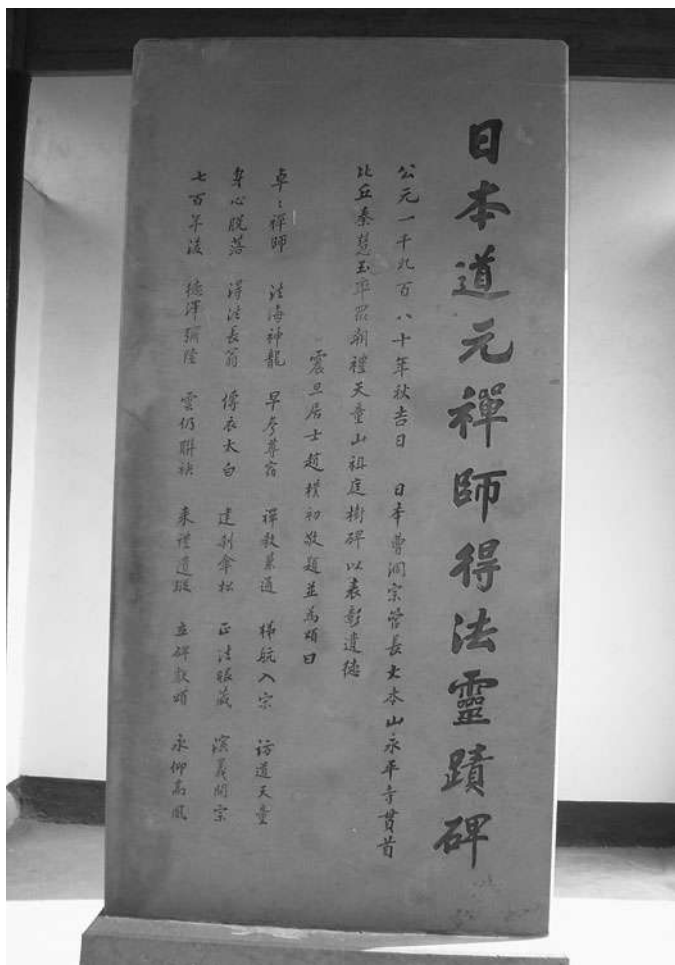 日本道元禪師得法靈蹟碑
公元一千九百八十年秋吉日 日本曹洞宗管長大本山永平寺貫首
比丘秦慧玉率眾朝禮天童山祖庭樹碑以表彰遺德
震旦居士趙樸初敬題並為頌曰
卓〻禪師 法海神龍 早參尊宿 禪教累通 梯航入宗 訪道天童
身心脫落 得法長翁 傳衣太白 建刹傘松 正法眼藏 演義開宗
七百年後 德澤彌隆 雲仍聯袂 來禮遺蹤 立碑獻頌 永仰高風